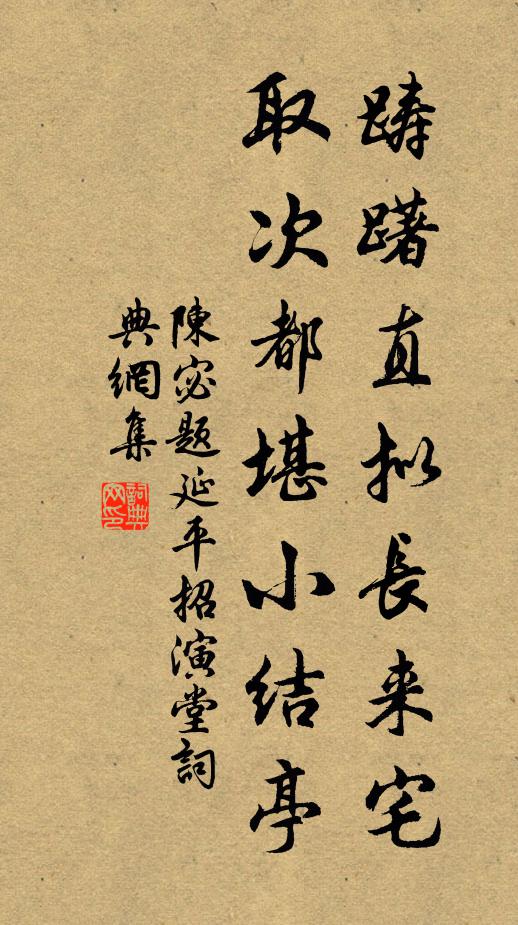 踌躇直拟長来宅
取次都堪小结亭
陳宓题延平招演堂詞
典網集
詞典
网印